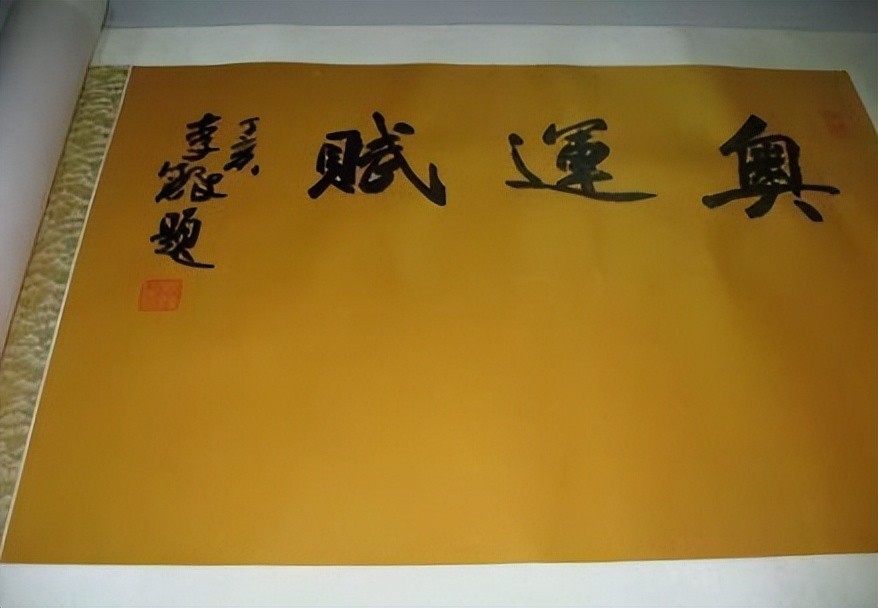 奥運賦
丁亥
李鐸題